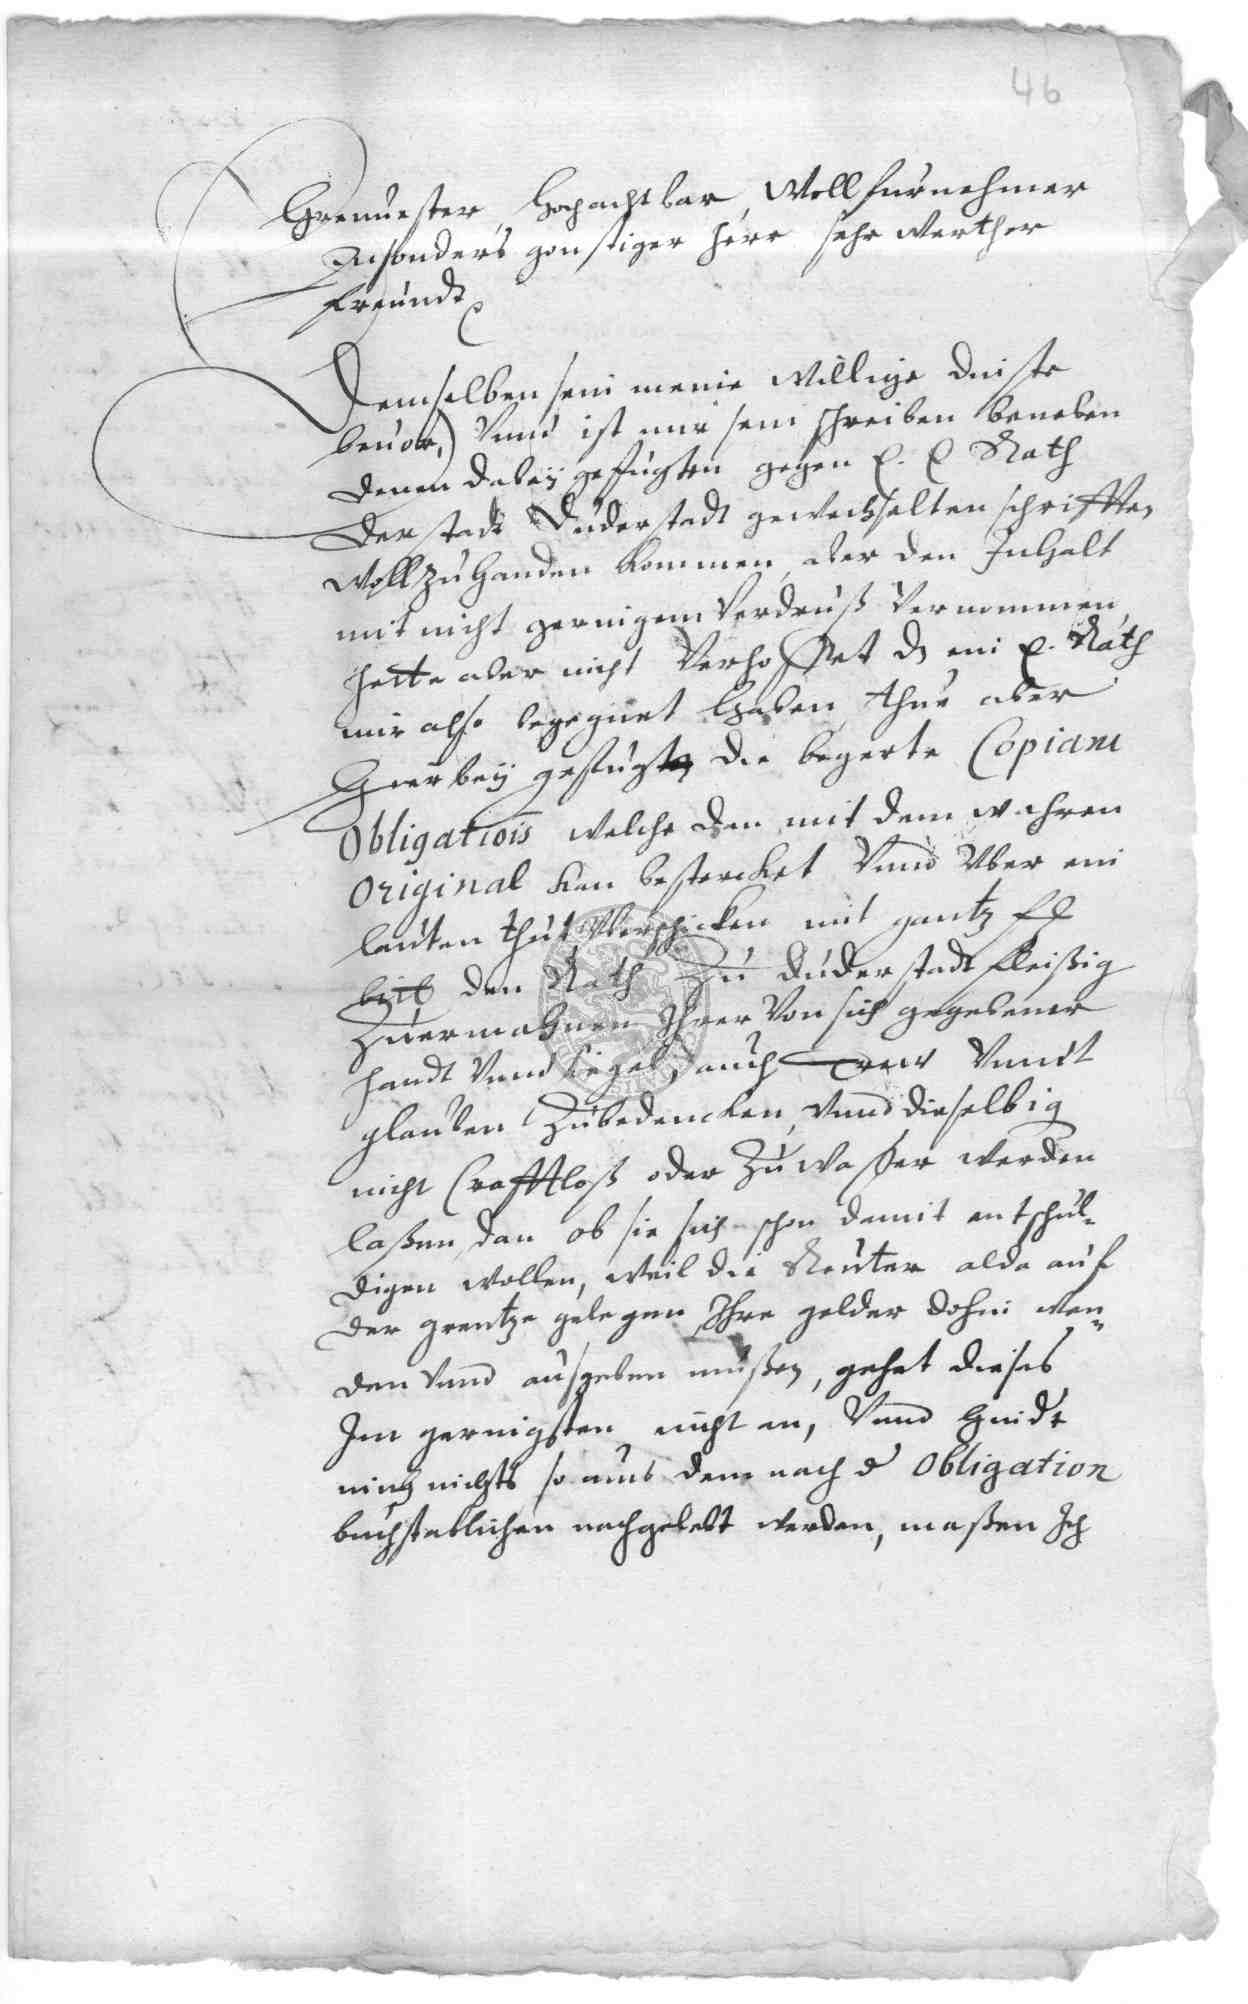 46
Grenuester, Hochachtbar, Wollfurnehmer
Insonders gonstiger herr sehr werther
freundt
Demselben sein meine willige dinste
beuor, Vnnd ist mir sein schreiben beneben
denen dabeÿ gefugten gegen E. E Rath
der stadt Duderstadt gewechselten schrifften
woll zu handen kommen, aber den Inhalt
mit nicht geringem Verdruß Vernommen,
hette aber nicht Verhoffet dz ein E. Rath
mir also begegnet haben, thue aber
Hierbeÿ gefugt die begerte Copiam
Obligatiois welche dan mit dem wahren
Original kan bestercket Vnnd Vber ein
lauten thut Vberschicken mit gantz fl
bitt den Rath Zu Duderstadt fleißig
Zuermahnen Ihrer Von sich gegebener
handt Vnnd siegel, auch trew Vnndt
glauben Zubedencken, Vnnd dieselbig
nicht Crafftloß oder Zu waßer werden
laßen, dan ob sie sich schon damit entschul-
digen wollen, weil die Reuter alda auf
der grentze gelegen Ihre gelder dohin wen-
den Vnnd ausgeben mußen, gehet dieses
Im geringsten nicht an, Vnnd hindt
mich nichts so mus dem nach d Obligation
buchstablichen nachgelebt werden, maßen Ich